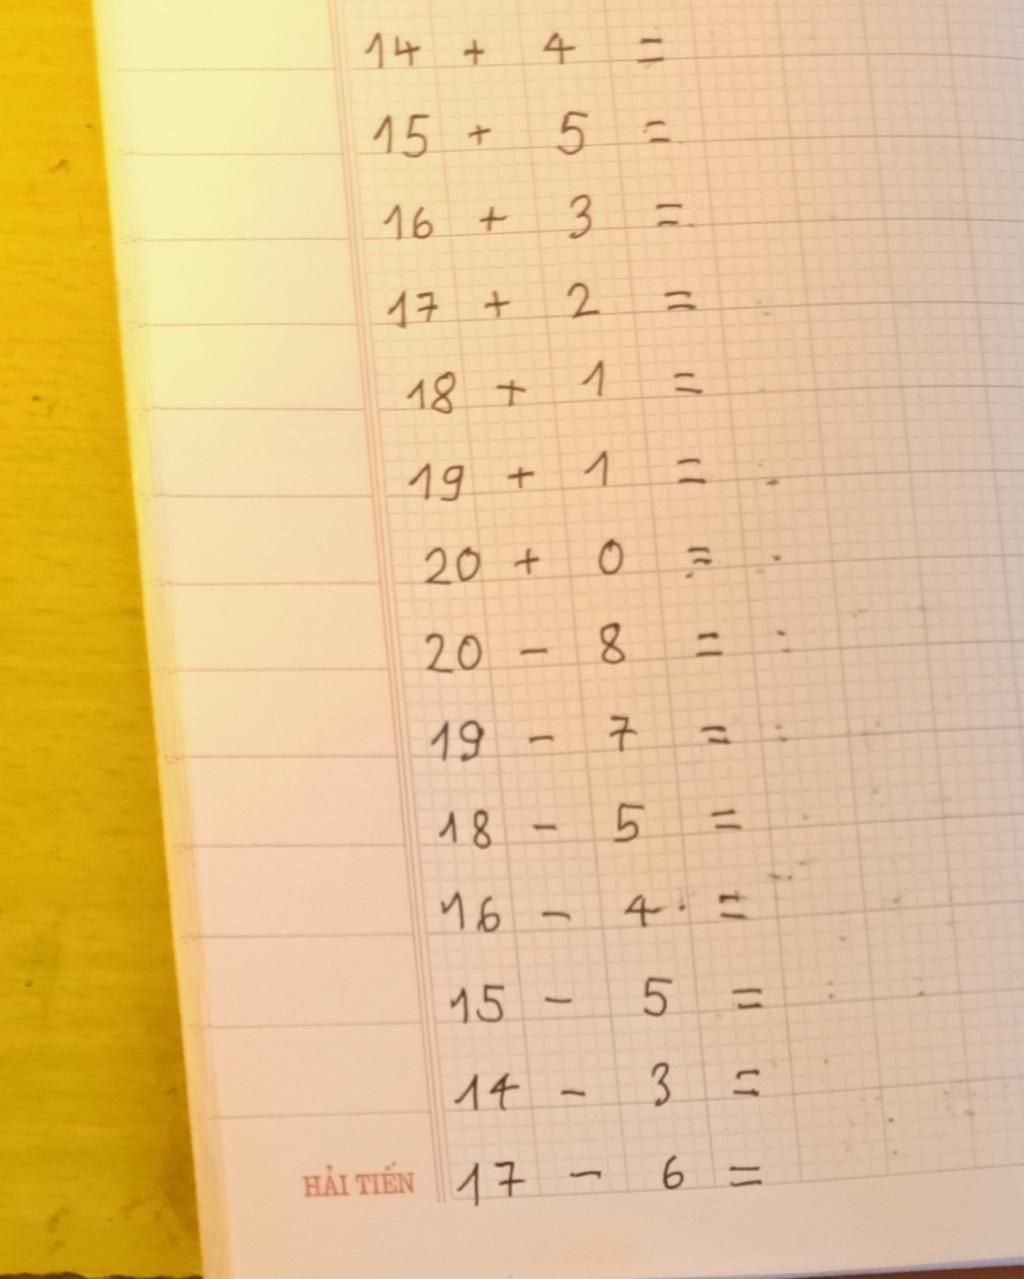 14 + 4 =
15 + 5 =
16 + 3 =
17 + 2 =
18 + 1 =
19 + 1 =
20 + 0 =
20 - 8 =
19 - 7 =
18 - 5 =
16 - 4 =
15 - 5 =
14 - 3 =
HẢI TIẾN 17 - 6 =